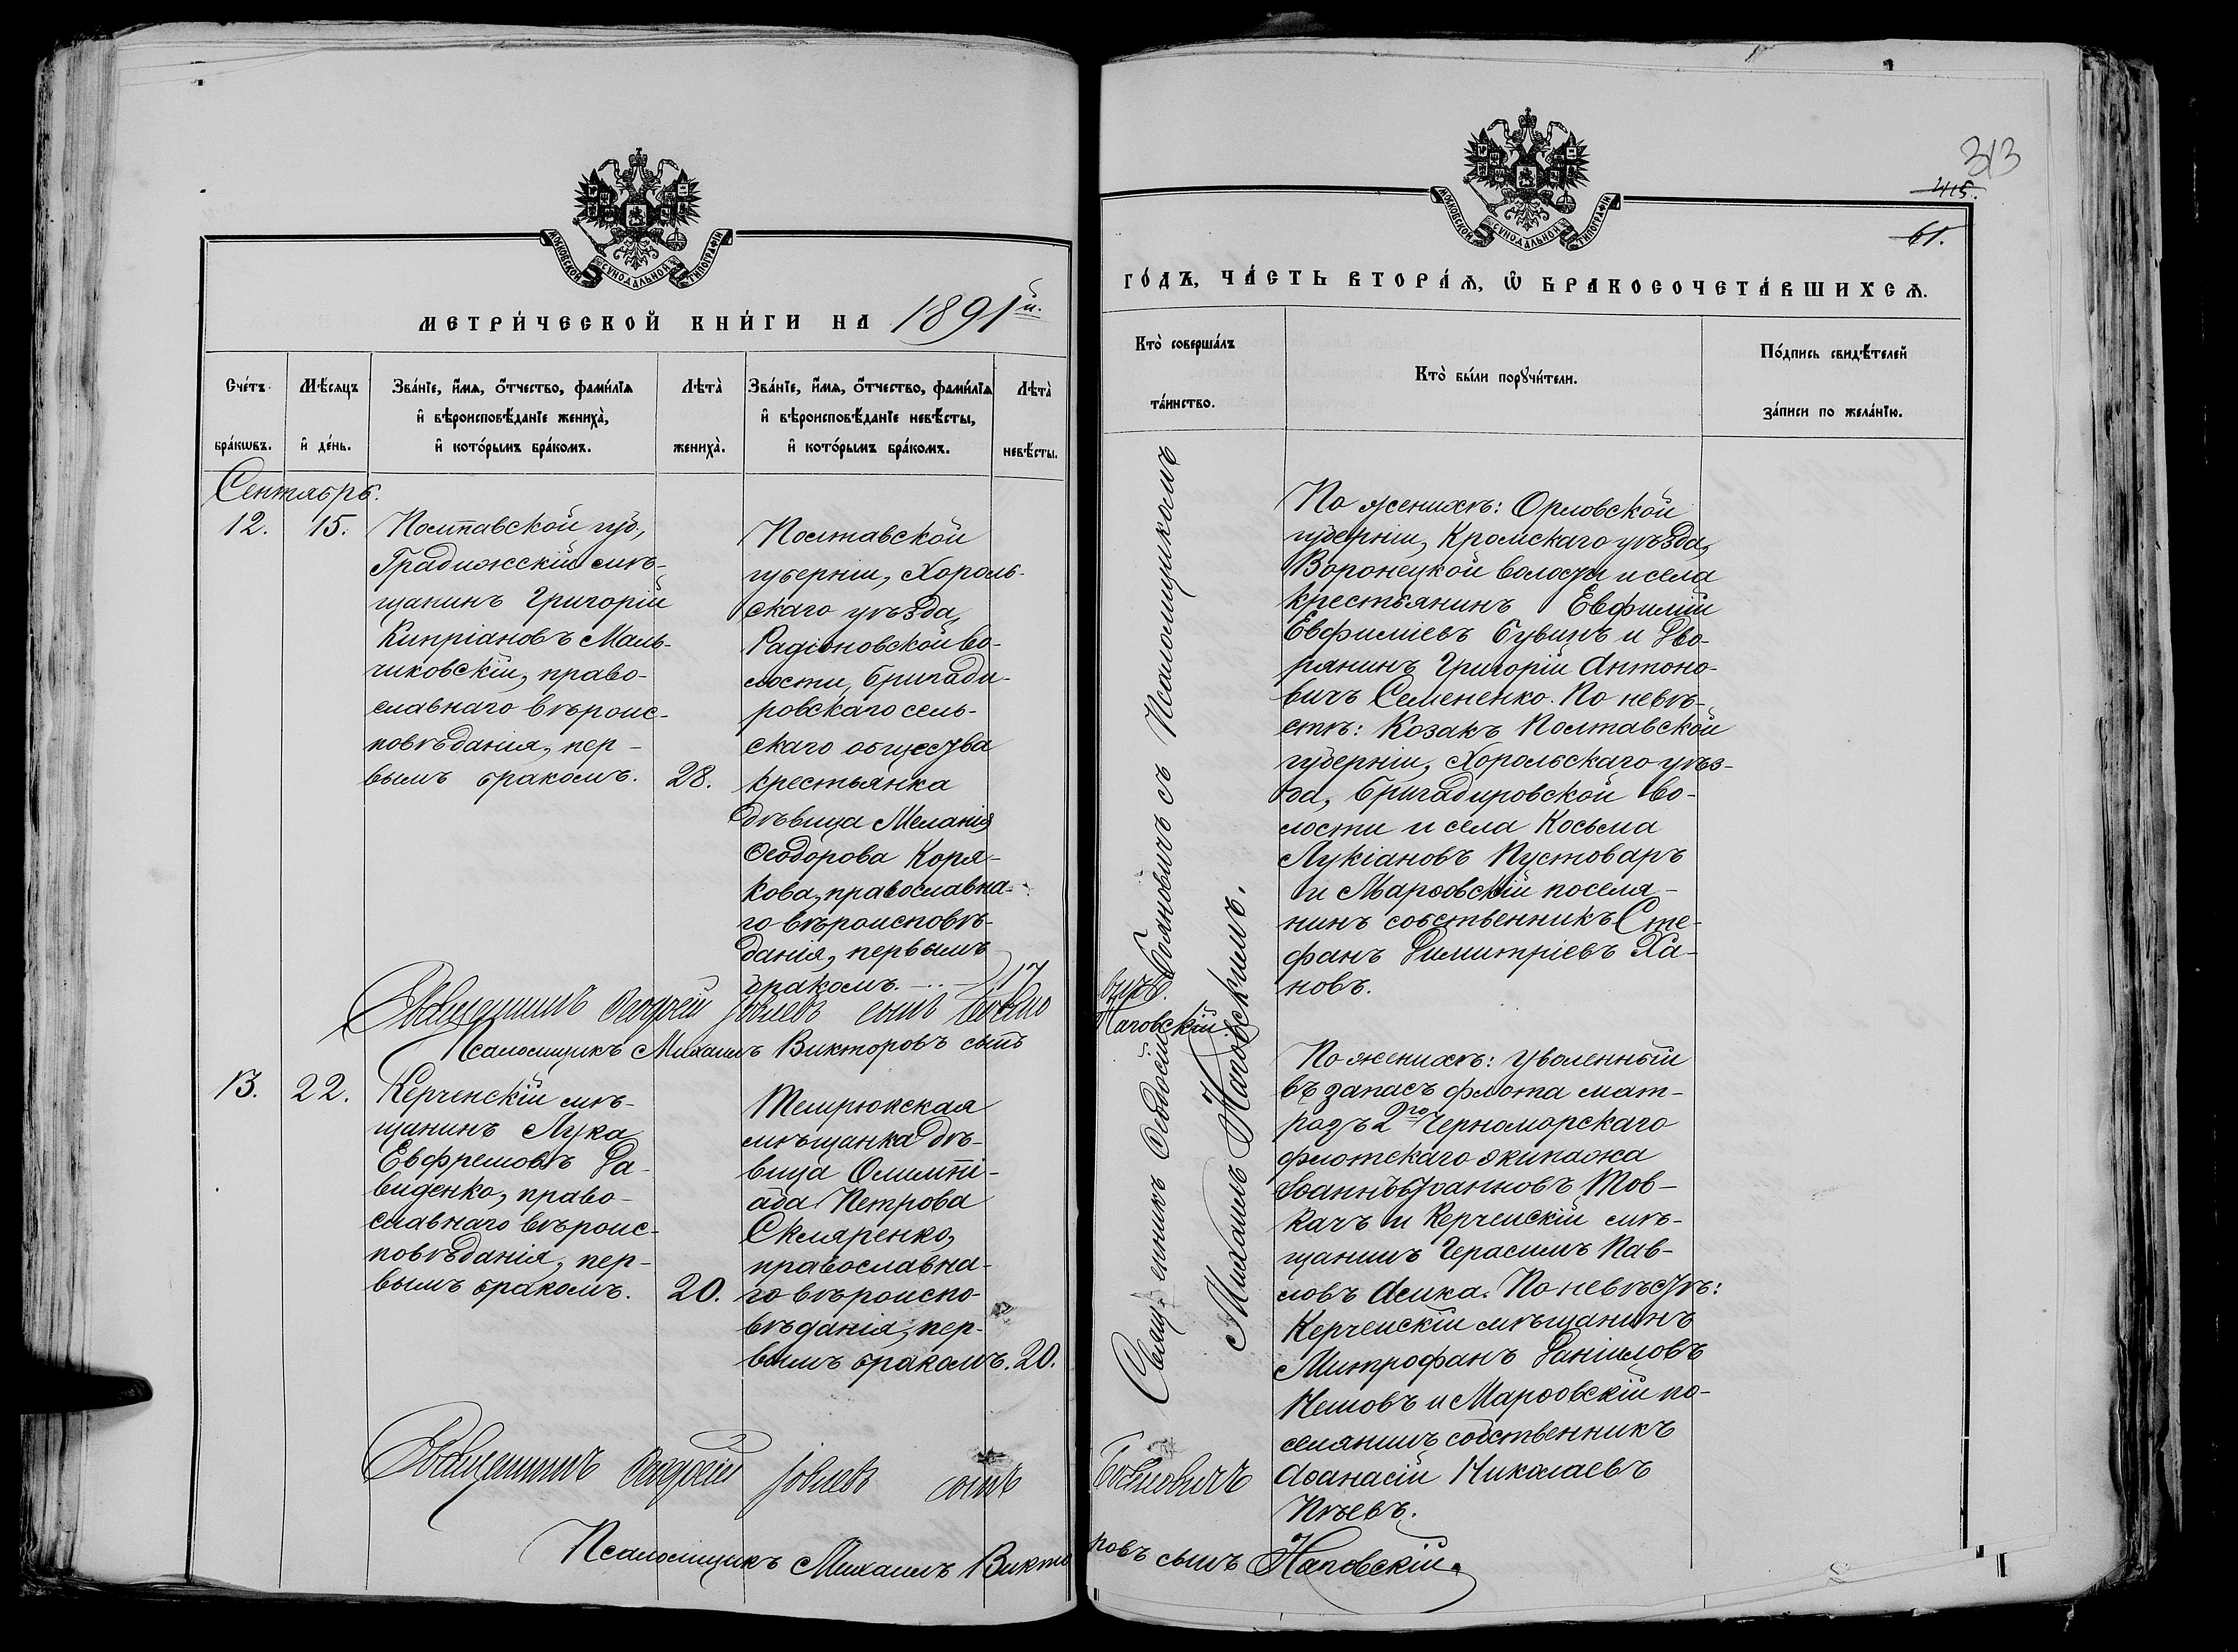 МОСКОВСКОЙ СѴНОДАЛЬНОЙ ТИПОГРАФІИ
МЕТРИ́ЧЕСКОЙ КНИ́ГИ НА 1891й.
Сче́тъ бра́кѡвъ.
Мѣ́сяцъ и҆ де́нь.
Зва́нїе, и҆́мѧ, ѻ҆́тчество, фами́лїѧ и҆ вѣроисповѣ́данїе жениха̀, и҆ кото́рымъ бра́комъ.
Лѣта̀ жениха̀.
Зва́нїе, и҆́мѧ, ѻ҆́тчество, фами́лїѧ и҆ вѣроисповѣ́данїе невѣ́сты, и҆ кото́рымъ бра́комъ.
Лѣта̀ невѣ́сты.
Сентябрь.
12.
15.
Полтавской губ.,
Градижскій мѣ-
щанинъ Григорій
Кипріановъ Маль-
чиковскій, право-
славнаго вѣроис-
повѣданія, пер-
вымъ бракомъ.
28.
Полтавской
губерніи, Хороль-
скаго уѣзда,
Радіоновской во-
лости, Бригади-
ровскаго сель-
скаго общества
крестьянка
дѣвица Меланія
Ѳеодорова Коря-
кова, православна-
го вѣроисповѣ-
данія, первымъ
бракомъ.
17
Священникъ Ѳеодосій Іовлевъ сынъ
Псаломщикъ Михаилъ Викторовъ сынъ
13.
22.
Керченскій мѣ-
щанинъ Лука
Евфремовъ Да-
виденко, право-
славнаго вѣроис-
повѣданія, пер-
вымъ бракомъ.
20.
Темрюкская
мѣщанка дѣ-
вица Олимпі-
ада Петрова
Скляренко,
православна-
го вѣроиспо-
вѣданія, пер-
вымъ бракомъ.
20.
Священникъ Ѳеодосій Іовлевъ сынъ
Псаломщикъ Михаилъ Викто
313
415.
61.
МОСКОВСКОЙ СѴНОДАЛЬНОЙ ТИПОГРАФІИ
ГО́ДЪ, ЧА́СТЬ ВТОРА́Ѧ, Ѽ БРАКОСОЧЕТА́ВШИХСѦ.
Кто̀ соверша́лъ та́инство.
Кто̀ бы́ли порꙋчи́тели.
По́дпись свидѣ́телей за́писи по жела́нїю.
Священникъ Ѳеодосій Боянович съ Псаломщикомъ
Михаиломъ Наговскимъ.
По женихѣ: Орловской
губерніи, Кромскаго уѣзда,
Воронецкой волости и села
крестьянинъ Евфимій
Евфиміевъ Бувинъ и Дво-
рянинъ Григорій Антоно-
вичъ Семененко. По невѣ-
стѣ: Козакъ Полтавской
губерніи, Хорольскаго уѣз-
да, Бригадировской во-
лости и села Косьма
Лукіановъ Пустоваръ
и Марѳовскій поселя-
нинъ собственникъ Сте-
фанъ Димитріевъ Ха-
новъ.
вичъ.
Наговскій
По женихѣ: Уволенный
въ запасъ флота мат-
розъ 2го Черноморскаго
флотскаго экипажа
Іоаннъ Іоанновъ Тов-
качъ и Керченскій мѣ-
щанинъ Герасимъ Пав-
ловъ Асика. По невѣстѣ:
Керченскій мѣщанинъ
Митрофанъ Даніиловъ
Немовъ и Марѳовскій по-
селянинъ собственникъ
Аѳанасій Николаевъ
Пѣевъ.
ровъ сынъ Наговскій.